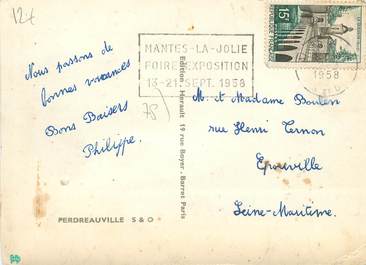 12€
MANTES-LA-JOLIE
FOIRE EXPOSITION
13-21.SEPT.1958
15F
1958
Nous passons de
bonnes vacances
Bons Baisers
Philippe.
78
Edition Herault 19 rue Boyer-Barret Paris
M. et Madame Boulen
rue Henri Ternon
Epouville
Seine-Maritime.
PERDREAUVILLE S & O